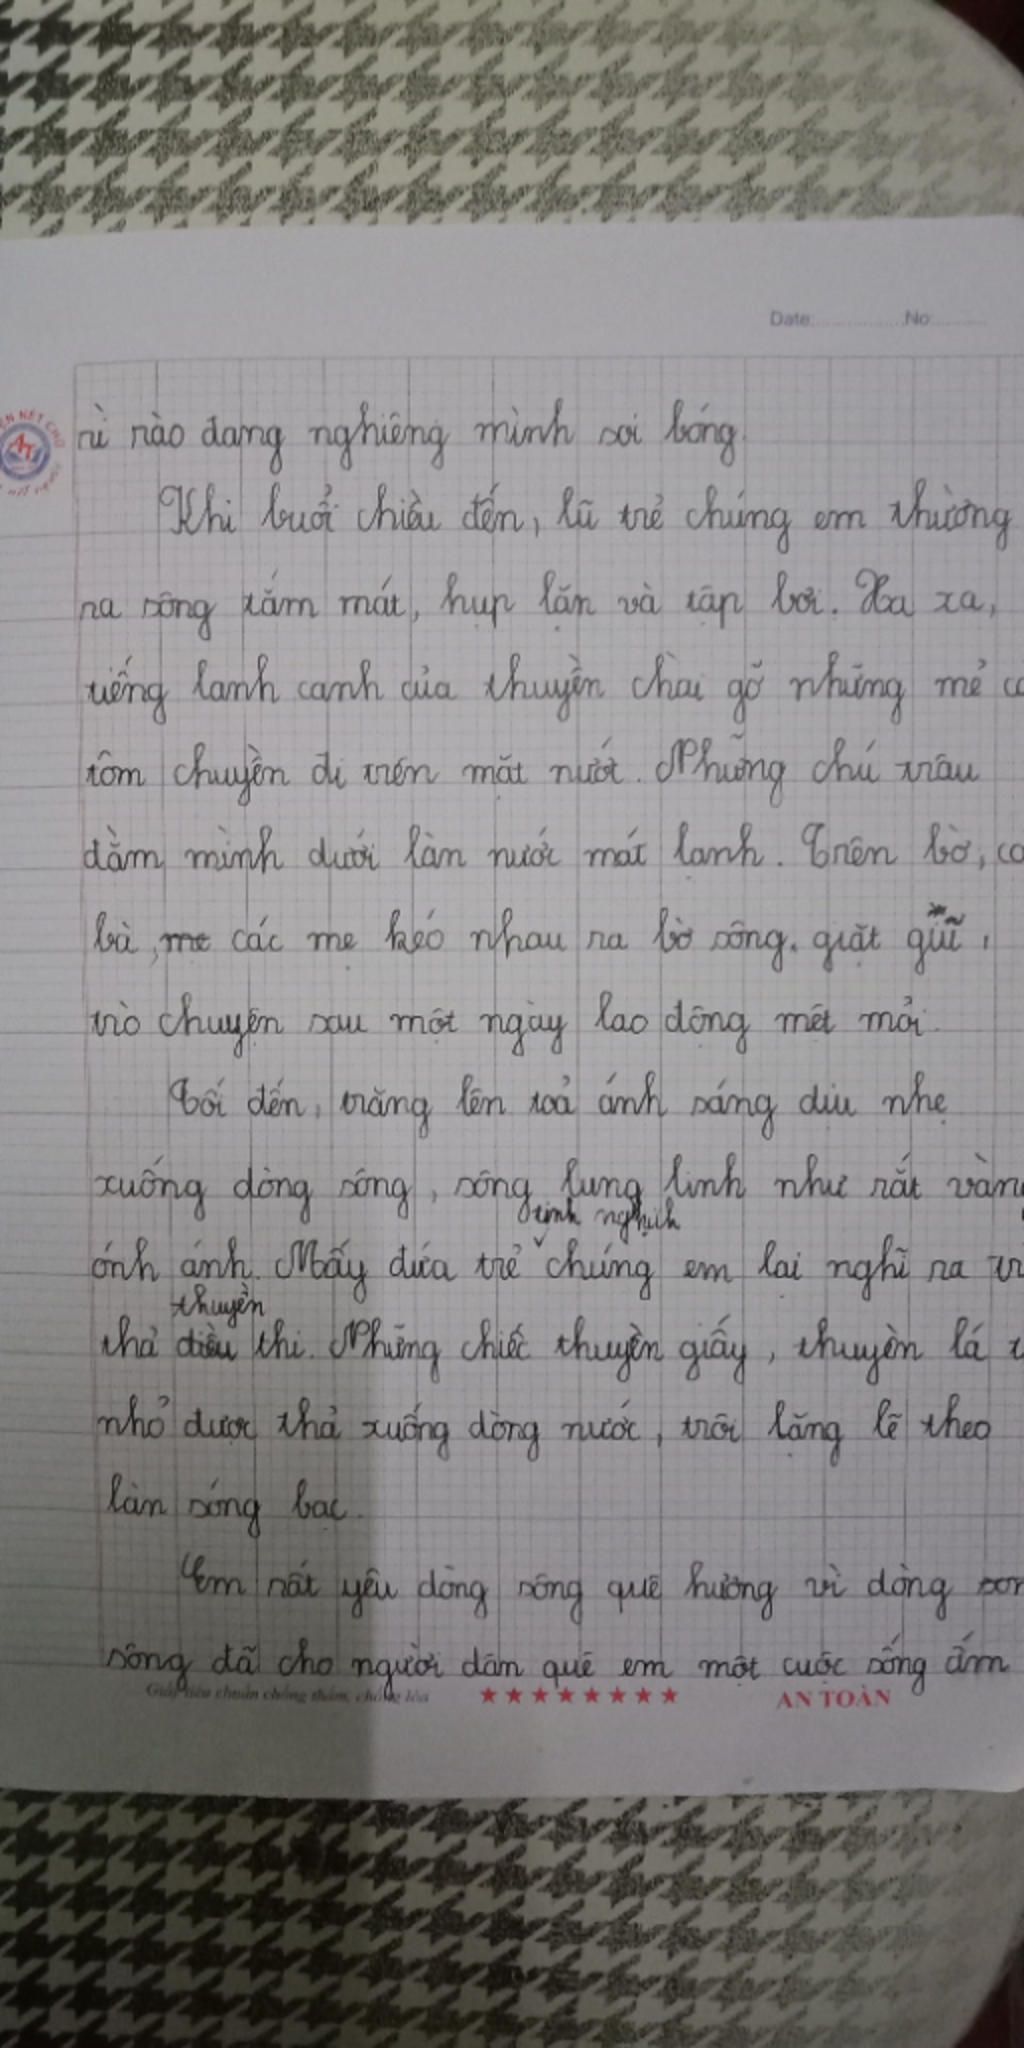 Date: No:
rì rào đang nghiêng mình soi bóng.
Khi buổi chiều đến, lũ trẻ chúng em thường
ra sông tắm mát, hụp lặn và tập bơi. Xa xa,
tiếng lanh canh của thuyền chài gõ những mẻ
tôm chuyền đi trên mặt nước. Những chú trâu
đằm mình dưới làn nước mát lạnh. Trên bờ,
bà, các mẹ kéo nhau ra bờ sông. giặt gũi,
trò chuyện sau một ngày lao động mệt mỏi.
Tối đến, trăng lên toả ánh sáng dịu nhẹ
xuống dòng sông, sông lung linh như rắt vàng
tinh nghịch
ónh ánh. Mấy đứa trẻ chúng em lại nghĩ ra
thuyền
thả thi. Những chiếc thuyền giấy, thuyền lá
nhỏ được thả xuống dòng nước, trôi lặng lẽ theo
làn sóng bạc.
Em rất yêu dòng sông quê hương vì dòng
sông đã cho người dân quê em một cuộc sống ấm
Giấy tiêu chuẩn chống thấm, chống lóa AN TOÀN